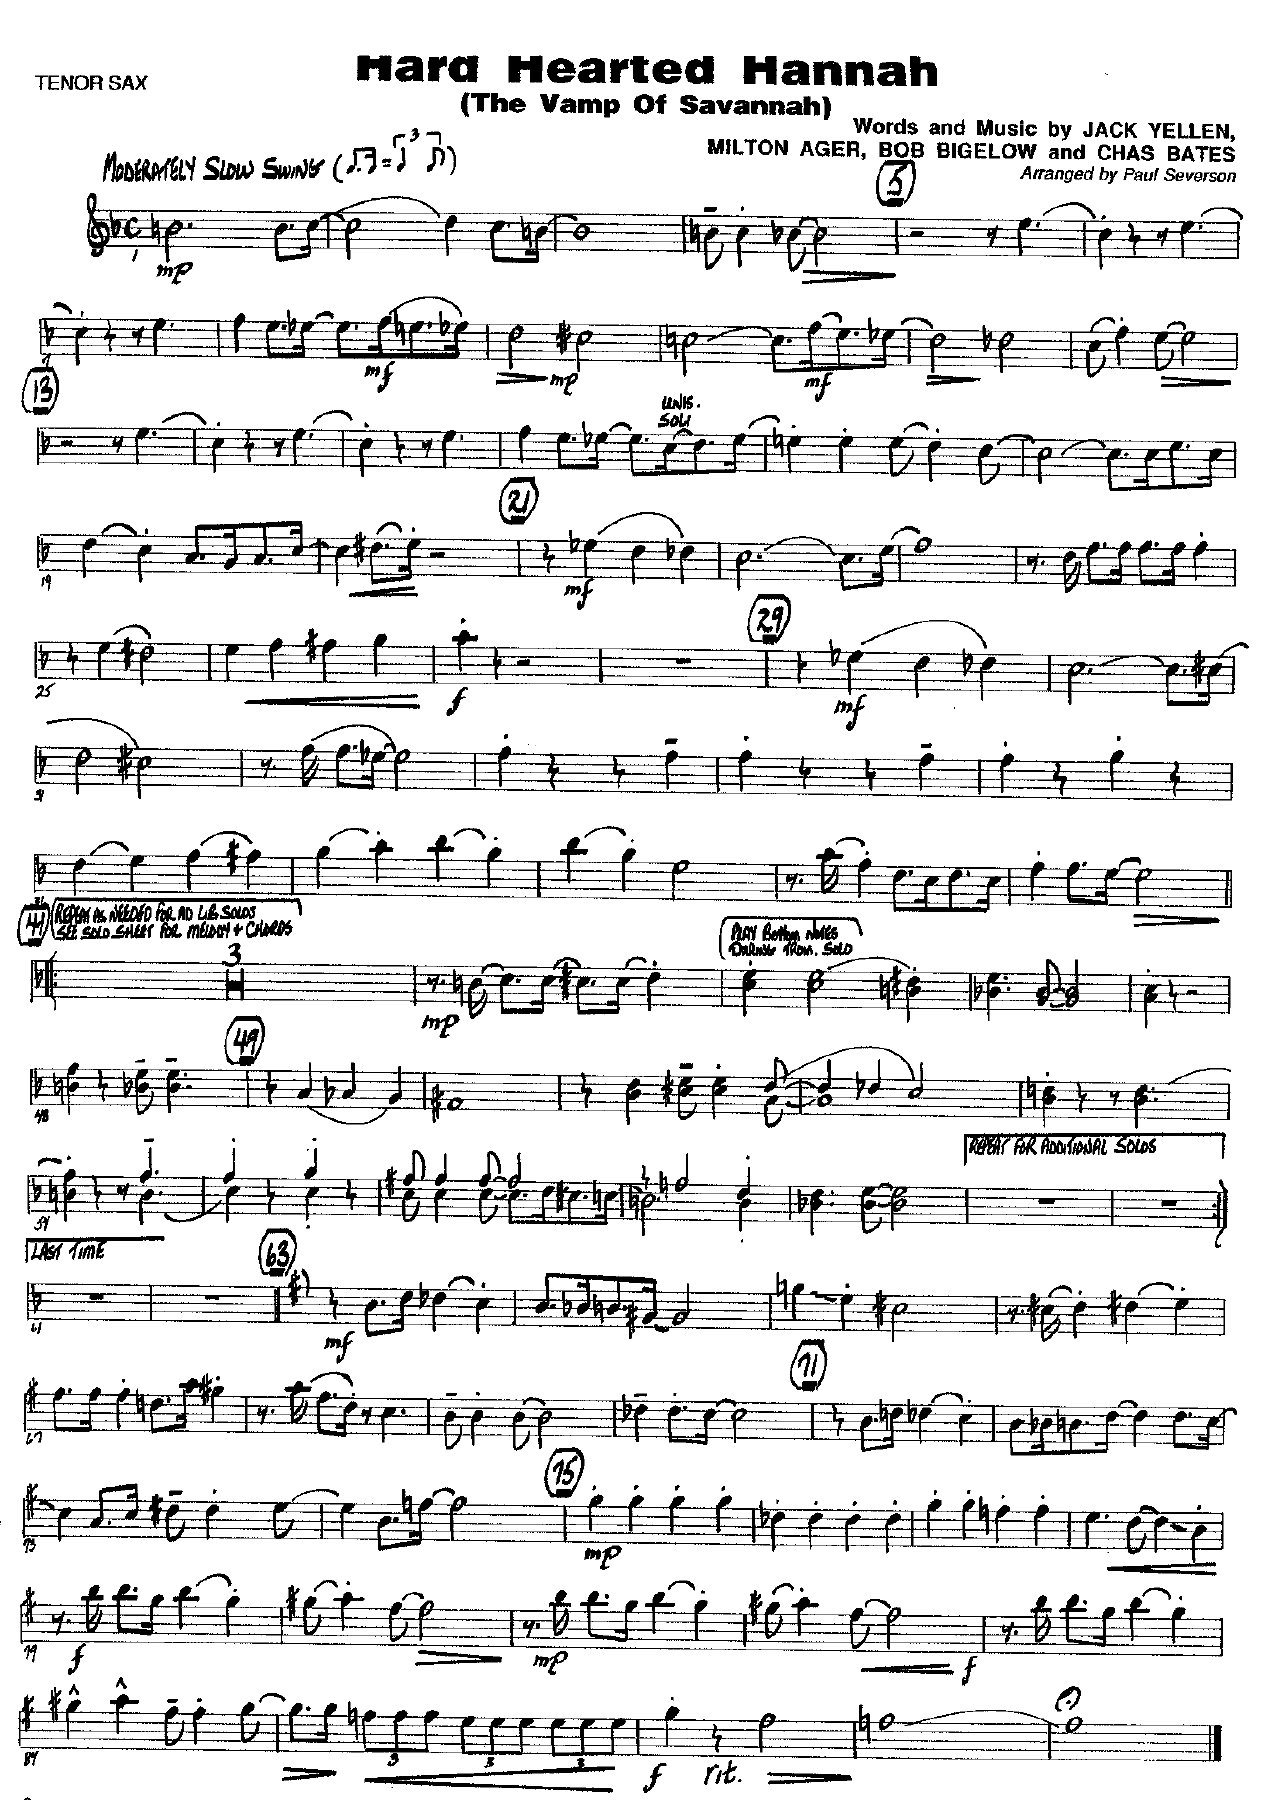 Hard Hearted Hannah
TENOR SAX
(The Vamp Of Savannah)
Words and Music by JACK YELLEN,
MILTON AGER, BOB BIGELOW and CHAS BATES
Arranged by Paul Severson
MODERATELY SLOW SWING ( = 3 )
5
1
mp
7
mf
mp
mf
13
UNIS.
SOLI
21
19
mf
29
25
f
mf
31
36
41
REPEAT AS NEEDED FOR AD LIB SOLOS
SEE SOLO SHEET FOR MELODY + CHORDS
3
PLAY BOTTOM NOTES
DURING TROM. SOLO
mp
49
48
REPEAT FOR ADDITIONAL SOLOS
54
LAST TIME
63
61
mf
71
67
75
73
mp
79
f
mp
f
84
3
3
3
f rit.